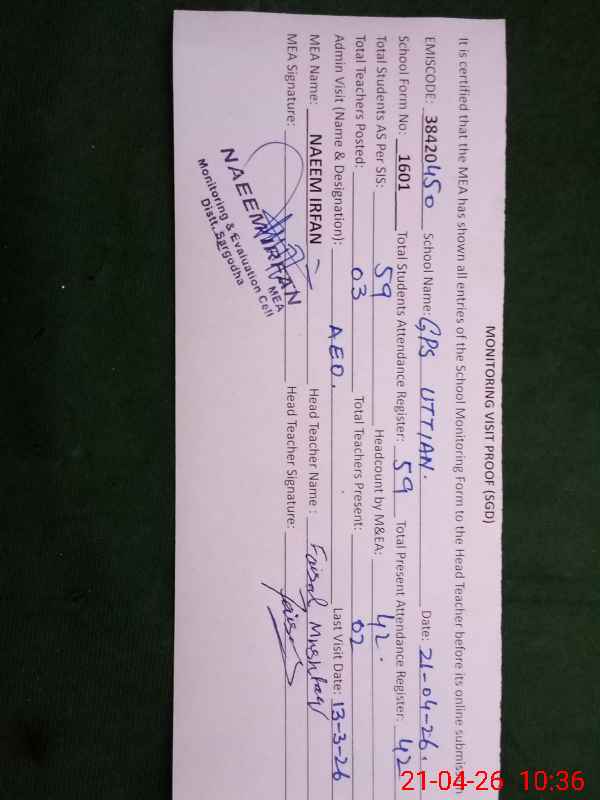 MONITORING VISIT PROOF (SGD)
It is certified that the MEA has shown all entries of the School Monitoring Form to the Head Teacher before its online submission
EMISCODE: 38420450 School Name: GPS UTTIAN. Date: 21-04-26.
School Form No: 1601 Total Students Attendance Register: 59 Total Present Attendance Register: 42
Total Students AS Per SIS: 59 Headcount by M&EA: 42.
Total Teachers Posted: 03 Total Teachers Present: 02
Admin Visit (Name & Designation): AEO. Last Visit Date: 13-3-26
MEA Name: NAEEM IRFAN Head Teacher Name : Faisal Mushtaq
MEA Signature: Head Teacher Signature: Faisal
NAEEM IRFAN
MEA
Monitoring & Evaluation Cell
Distt. Sargodha
21-04-26 10:36